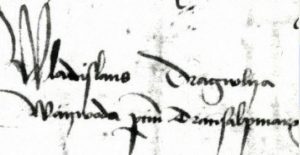 Wladislaus Dragwlya
Waywoda Transalpinar